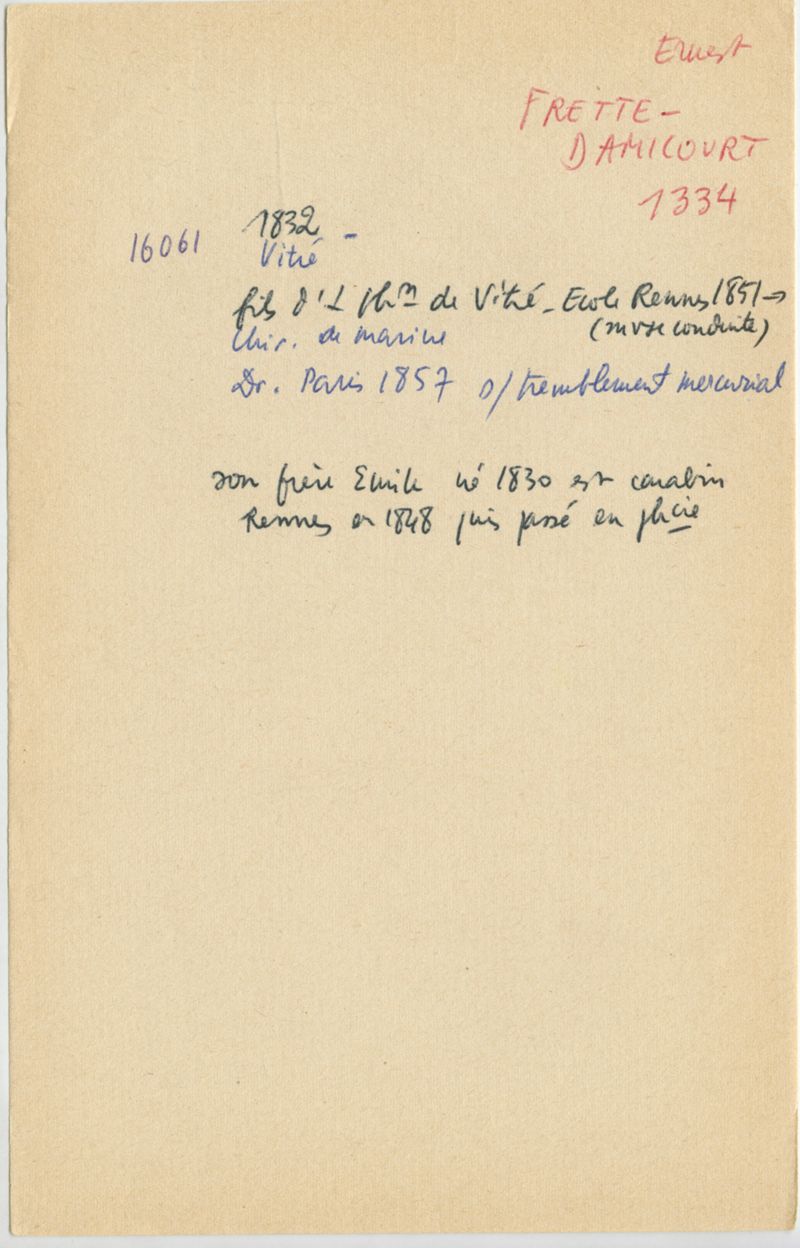 Ernest
FRETTE-
DAMICOURT
1334
1832
16061 Vitré -
fils d'1 phn de Vitré - Ecole Rennes 1851 →
(mvse conduite)
Chir. de marine
Dr. Paris 1857 s/ tremblement mercurial
son frère Emile né 1830 est carabin
Rennes en 1848 puis passé en phcie